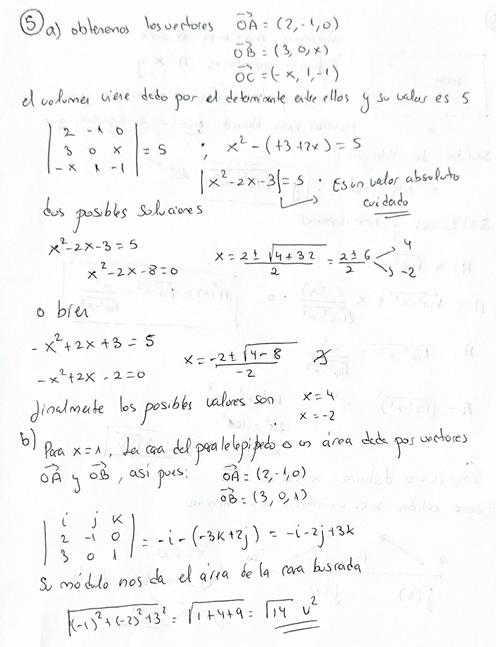 ⑤ a) obtenemos los vectores OA = (2, -1, 0)
OB = (3, 0, x)
OC = (-x, 1, -1)
el volumen viene dado por el determinante entre ellos y su valor es 5
| 2 -1 0 |
| 3 0 x | = 5 ; x² - (+3 + 2x) = 5
| -x 1 -1 |
|x² - 2x - 3| = 5 . Es un valor absoluto
cuidado
dos posibles soluciones
x² - 2x - 3 = 5
x² - 2x - 8 = 0
x = (2 ± √(4 + 32))/2 = (2 ± 6)/2 → 4, -2
o bien
-x² + 2x + 3 = 5
-x² + 2x - 2 = 0
x = (-2 ± √(4 - 8))/-2 ∄
finalmente los posibles valores son x = 4
x = -2
b) Para x = 1, La cara del paralelepípedo es un área dada por vectores
OA y OB, así pues: OA = (2, -1, 0)
OB = (3, 0, 1)
| i j k |
| 2 -1 0 | = -i - (-3k + 2j) = -i - 2j + 3k
| 3 0 1 |
Su módulo nos da el área de la cara buscada
√((-1)² + (-2)² + 3²) = √(1 + 4 + 9) = √14 u²